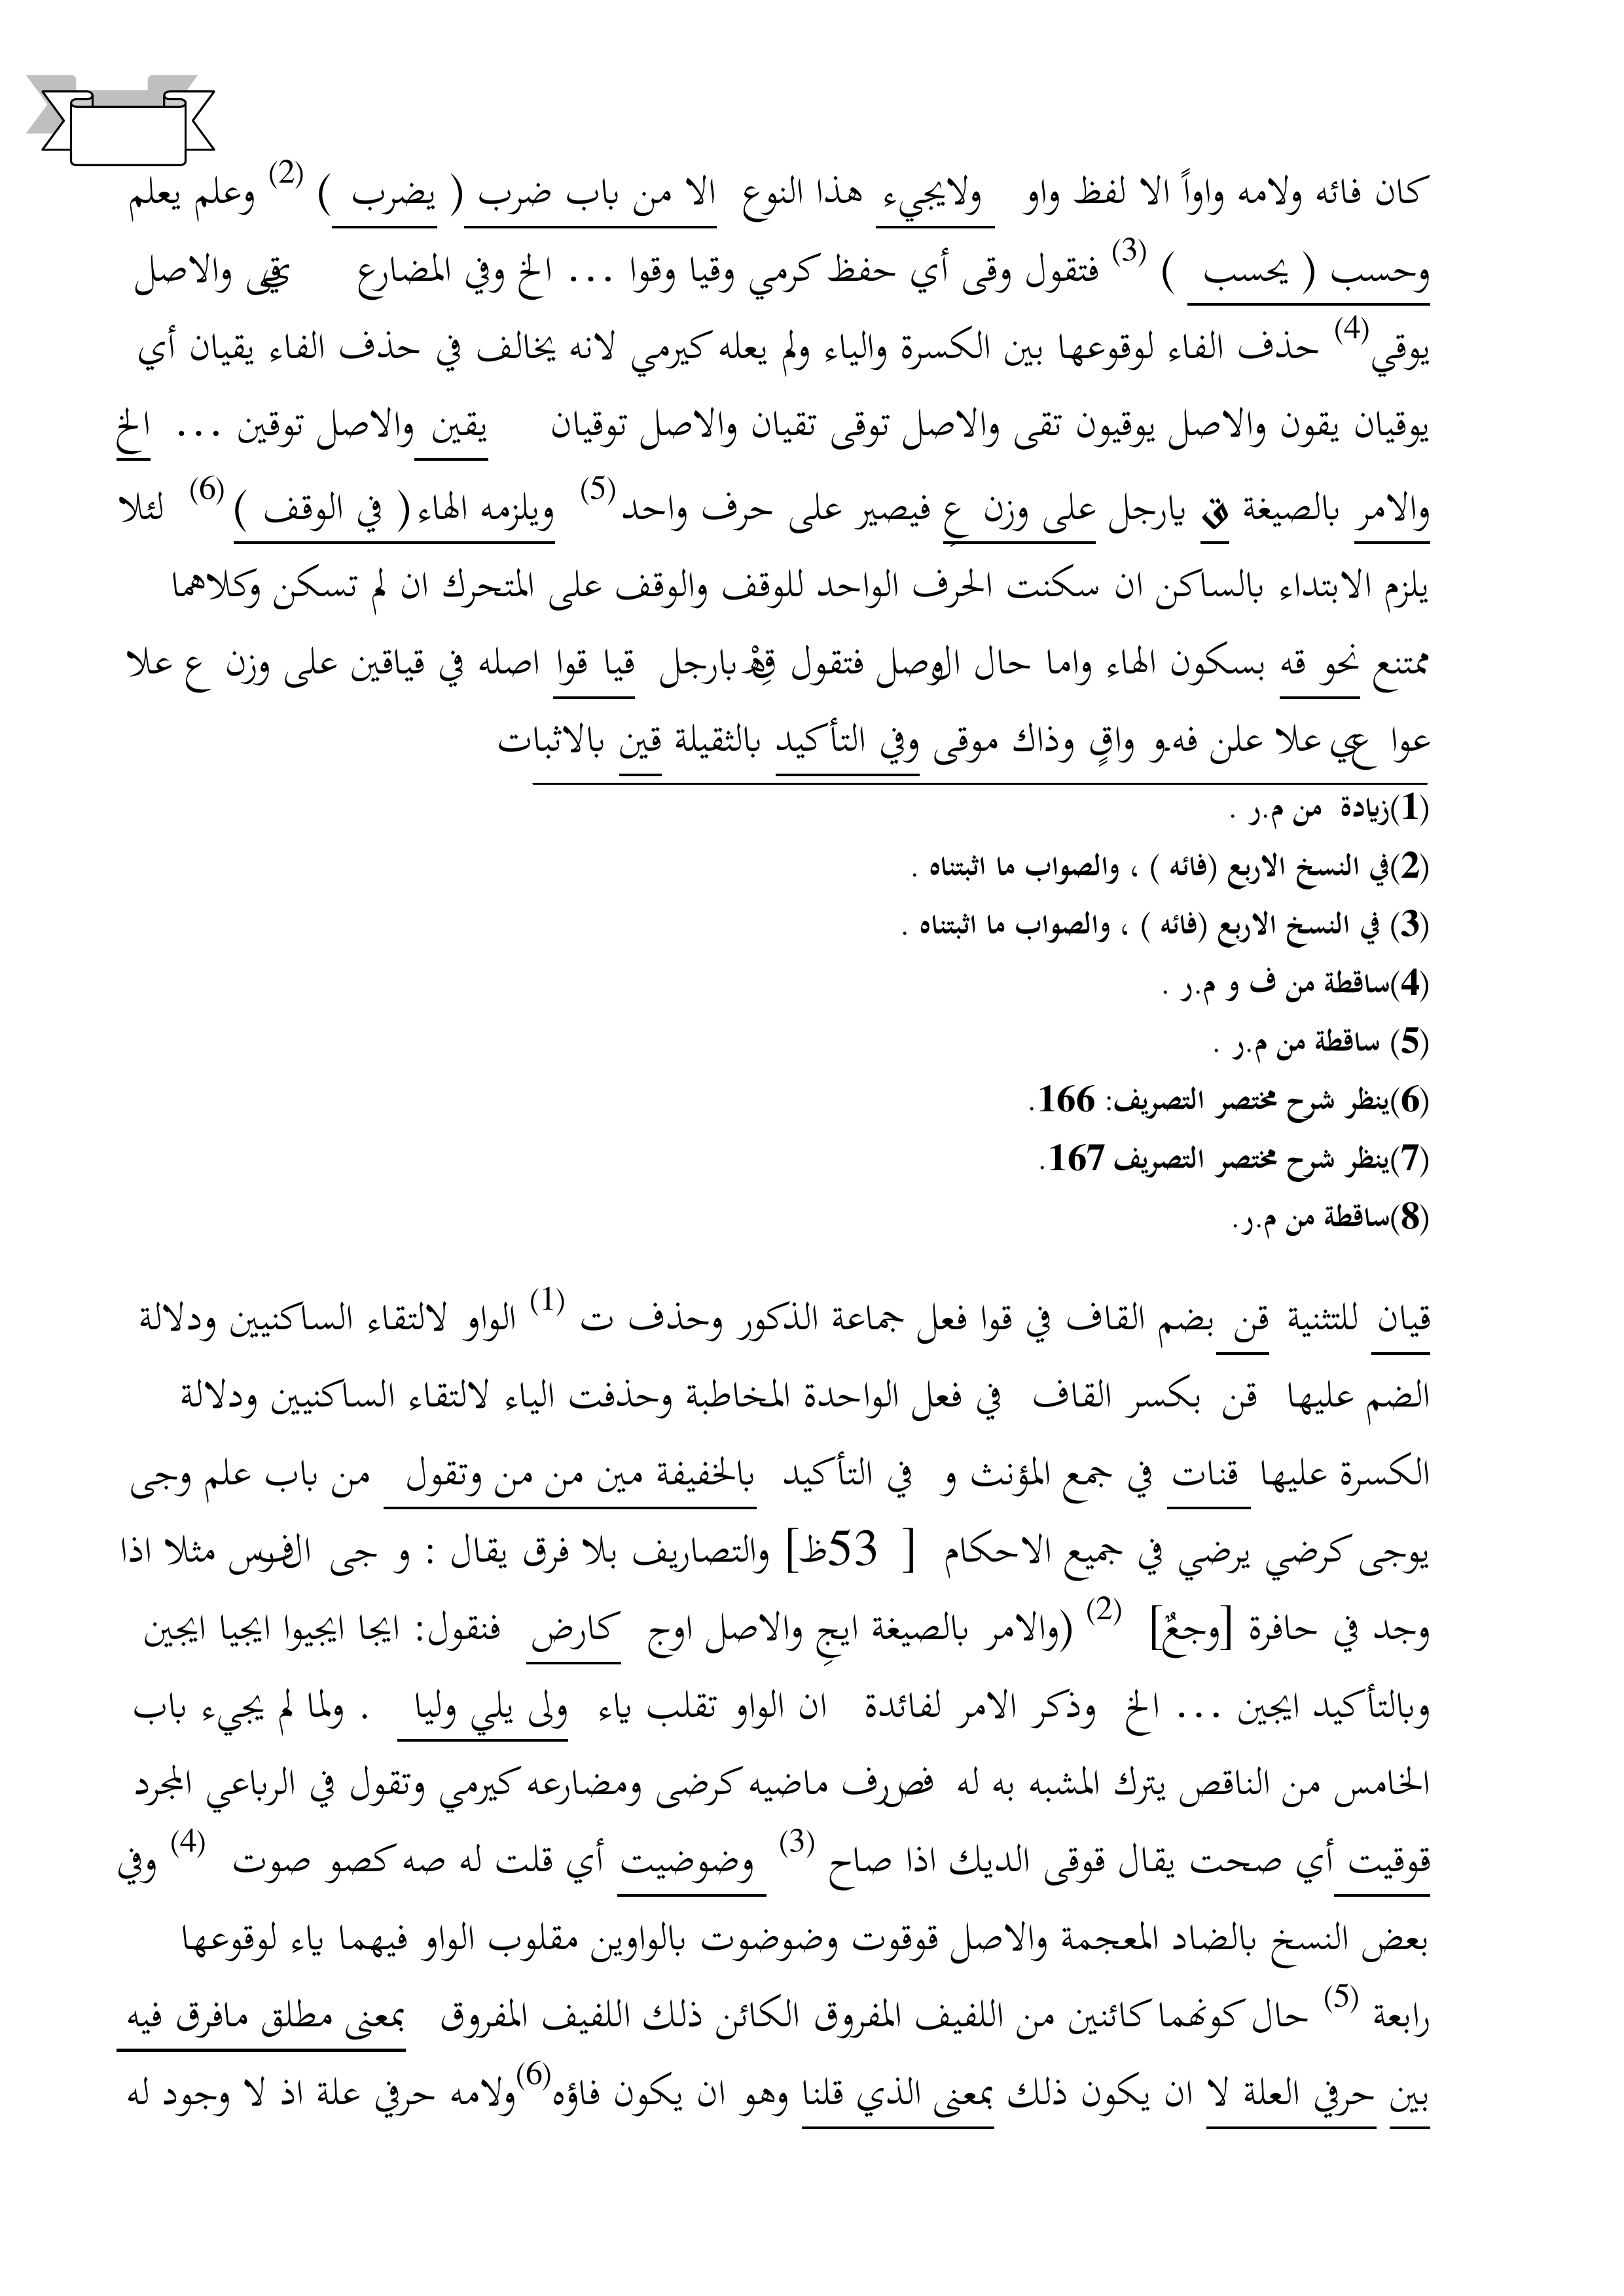 كان فائه ولامه واواً الا لفظ واو ولايجيء هذا النوع الا من باب ضرب ( يضرب ) (2) وعلم يعلم
وحسب ( يحسب ) (3) فتقول وقى أي حفظ كرمي وقيا وقوا ... الخ وفي المضارع يقي والاصل
يوقي(4) حذف الفاء لوقوعها بين الكسرة والياء ولم يعله كيرمي لانه يخالف في حذف الفاء يقيان أي
يوقيان يقون والاصل يوقيون تقى والاصل توقى تقيان والاصل توقيان يقين والاصل توقين ... الخ
والامر بالصيغة ق يارجل على وزن عِ فيصير على حرف واحد(5) ويلزمه الهاء( في الوقف )(6) لئلا
يلزم الابتداء بالساكن ان سكنت الحرف الواحد للوقف والوقف على المتحرك ان لم تسكن وكلاهما
ممتنع نحو قه بسكون الهاء واما حال الوصل فتقول قِهْ بارجل قيا قوا اصله في قياقين على وزن ع علا
عوا عي علا علن فهو واقٍ وذاك موقى وفي التأكيد بالثقيلة قين بالاثبات
(1)زيادة من م.ر .
(2)في النسخ الاربع (فائه ) ، والصواب ما اثبتناه .
(3) في النسخ الاربع (فائه ) ، والصواب ما اثبتناه .
(4)ساقطة من ف و م.ر .
(5) ساقطة من م.ر .
(6)ينظر شرح مختصر التصريف: 166.
(7)ينظر شرح مختصر التصريف 167.
(8)ساقطة من م.ر.
قيان للتثنية قن بضم القاف في قوا فعل جماعة الذكور وحذف ت (1) الواو لالتقاء الساكنيين ودلالة
الضم عليها قن بكسر القاف في فعل الواحدة المخاطبة وحذفت الياء لالتقاء الساكنيين ودلالة
الكسرة عليها قنات في جمع المؤنث و في التأكيد بالخفيفة مين من من وتقول من باب علم وجى
يوجى كرضي يرضي في جميع الاحكام [ 53ظ] والتصاريف بلا فرق يقال : و جى الفرس مثلا اذا
وجد في حافرة [وجعٌ] (2) (والامر بالصيغة ايجِ والاصل اوج كارض فنقول: ايجا ايجيوا ايجيا ايجين
وبالتأكيد ايجين ... الخ وذكر الامر لفائدة ان الواو تقلب ياء ولى يلي وليا . ولما لم يجيء باب
الخامس من الناقص يترك المشبه به له فصرف ماضيه كرضى ومضارعه كيرمي وتقول في الرباعي المجرد
قوقيت أي صحت يقال قوقى الديك اذا صاح (3) وضوضيت أي قلت له صه كصو صوت (4) وفي
بعض النسخ بالضاد المعجمة والاصل قوقوت وضوضوت بالواوين مقلوب الواو فيهما ياء لوقوعها
رابعة (5) حال كونهما كائنين من اللفيف المفروق الكائن ذلك اللفيف المفروق بمعنى مطلق مافرق فيه
بين حرفي العلة لا ان يكون ذلك بمعنى الذي قلنا وهو ان يكون فاؤه(6)ولامه حرفي علة اذ لا وجود له